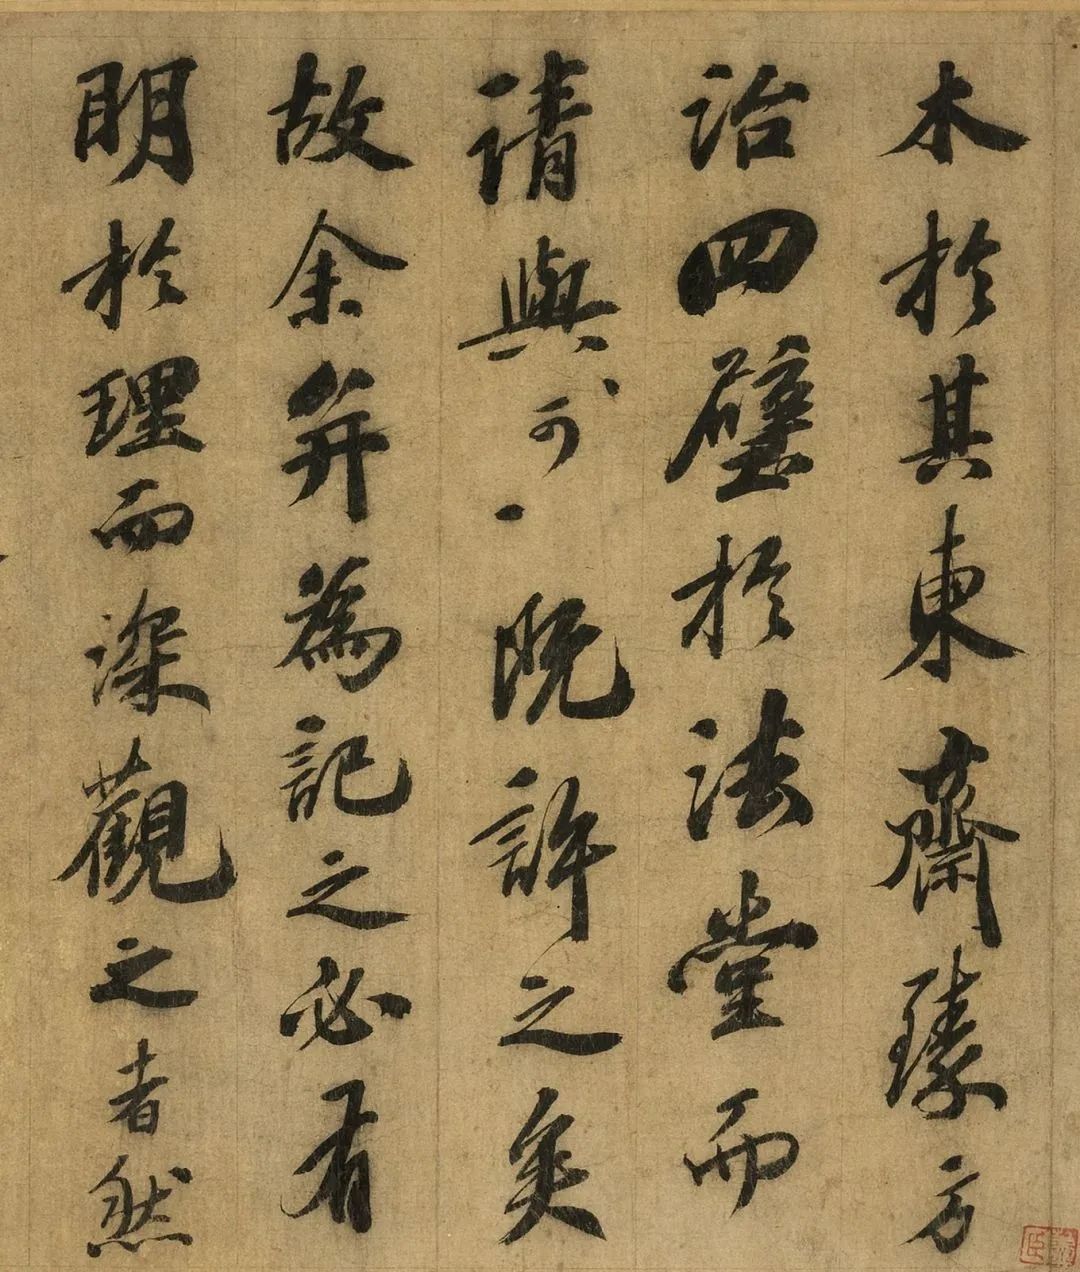 木於其東齋臻方
治四壁於法堂而
請與可與可既許之矣
故余并為記之必有
明於理而深觀之者然